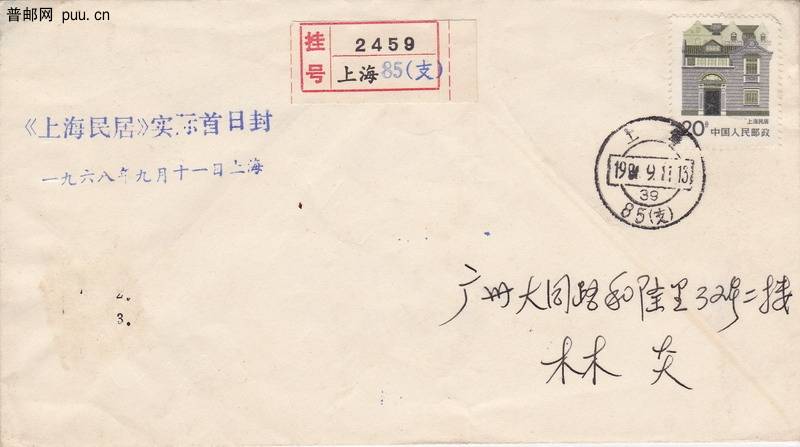 普邮网 puu.cn
挂号
2459
上海85(支)
20分 上海民居
中国人民邮政
《上海民居》实际首日封
一九六八年九月十一日上海
上海
39
85(支)
2.
3.
广州大同路和隆里
二楼
林炎